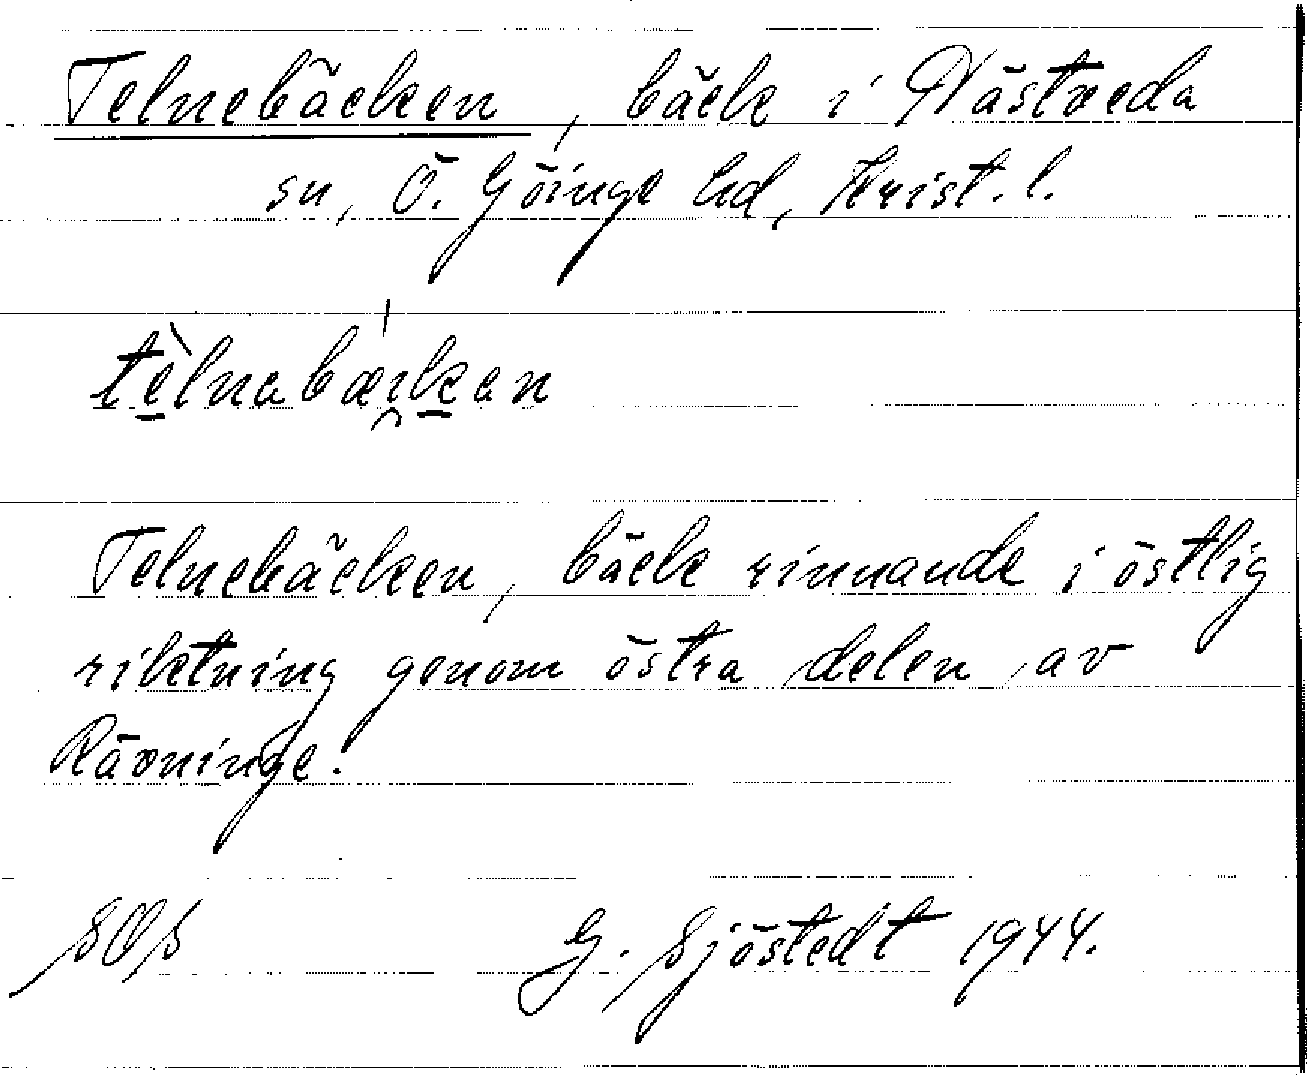 Telnebäcken, bäck i Västreda
sn, Ö. Göinge hd, Krist. l.
tèlnabæi̯kan
Telnebäcken, bäck rinnande i östlig
riktning genom östra delen av
Rävninge.
SOS G. Sjöstedt 1944.